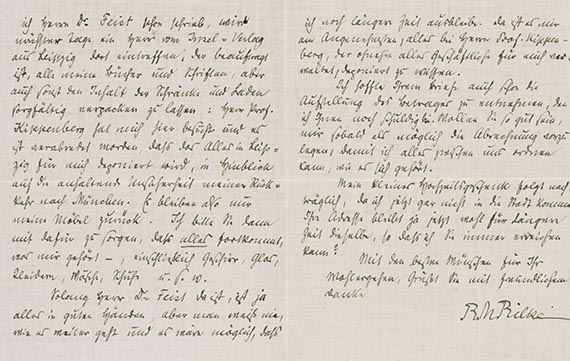 ich Herrn Dr. Feist schon schrieb, wird
nächster Tage ein Herr vom Insel-Verlag
aus Leipzig dort eintreffen, der beauftragt
ist, alle meine Bücher und Schriften, aber
auch sonst den Inhalt der Schränke und Laden
sorgfältig verpacken zu lassen: Herr Prof.
Kippenberg hat mich hier besucht und es
ist verabredet worden, dass das Alles in Leip-
zig für mich deponiert wird, in Hinblick
auf die anhaltend Unsicherheit meiner Rück-
kehr nach München. Es bleiben also nur
meine Möbel zurück. Ich bitte Sie dann
mit dafür zu sorgen, dass alles fortkommt,
was mir gehört –, einschließlich Geschirr, Glas,
Kleidern, Wäsche, Schuhe u. s. w.
Solang Herr Dr. Feist da ist, ist ja
alles in guten Händen, aber man weiß nie,
wie es weiter geht und es wäre möglich, dass
ich noch längere Zeit ausbleibe. Da ist es mir
am Angenehmsten, alles bei Herrn Prof. Kippen-
berg, der ohnehin alles Geschäftliche für mich ver-
waltet, deponiert zu wissen.
Ich hoffe Ihrem Briefe auch schon die
Aufstellung des Betrages zu entnehmen, den
ich Ihnen noch schuldig. Wollen Sie so gut sein,
mir sobald als möglich die Abrechnung vorzu-
legen, damit ich alles prüfen und ordnen
kann, wie es sich gehört.
Mein kleines Hochzeitsgeschenk folgt nach-
träglich, da ich jetzt gar nicht in die Stadt komme.
Ihre Adresse bleibt ja jetzt wohl für längere
Zeit dieselbe, so dass ich Sie immer erreichen
kann?
Mit den besten Wünschen für Ihr
Wohlergehen, Grüßt Sie mit freundlichem
Danke
R M Rilke